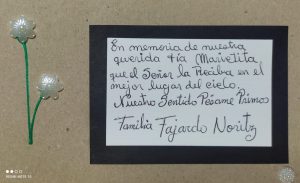 En memoria de nuestra
querida tía Marietita
que el Señor la Reciba en el
mejor lugar del cielo.
Nuestro Sentido Pésame Primos
Familia Fajardo Noritz